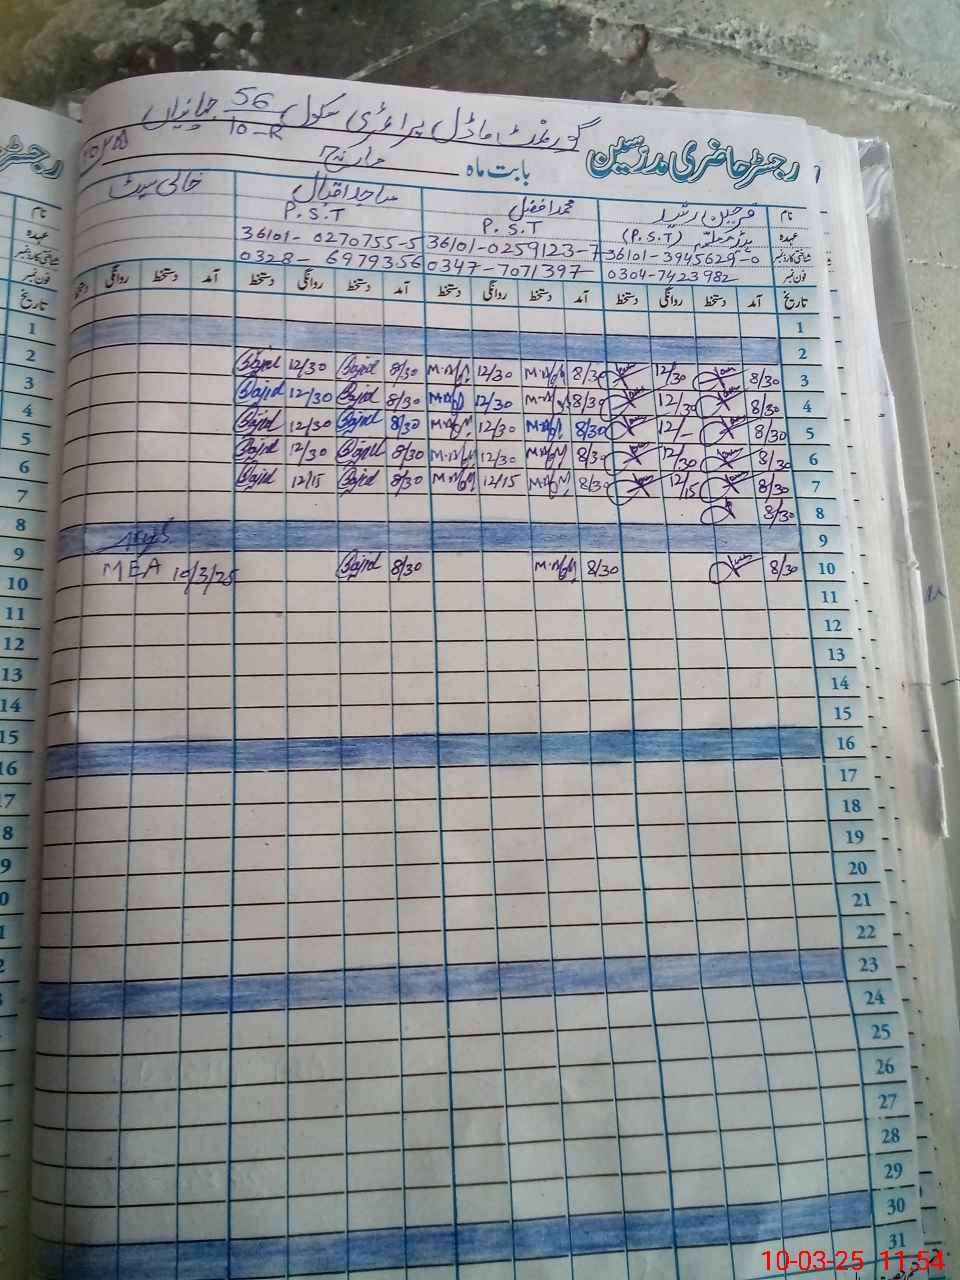 گورنمنٹ ماڈل پرائمری سکول 56/10-R جہانیاں
رجسٹر حاضری مدرسین بابت ماہ مارچ
نام محمد افضل ساجد اقبال خالی سیٹ
عہدہ (P.S.T) P.S.T P.S.T
شناختی کارڈ نمبر 36101-3945629-0 36101-0259123-7 36101-0270755-5
فون نمبر 0304-7423982 0347-7071397 0328-6979356
تاریخ آمد دستخط روانگی دستخط آمد دستخط روانگی دستخط آمد دستخط روانگی دستخط آمد دستخط روانگی دستخط
1
2
3 8/30 12/30 8/30 12/30 8/30 Sajid 12/30 Sajid
4 8/30 12/30 8/30 12/30 8/30 Sajid 12/30 Sajid
5 8/30 12/- 8/30 12/30 8/30 Sajid 12/30 Sajid
6 8/30 12/30 8/30 12/30 8/30 Sajid 12/30 Sajid
7 8/30 12/15 8/30 12/15 8/30 Sajid 12/15 Sajid
8 8/30
9
10 8/30 8/30 8/30 Sajid 10/3/25 MEA
11
12
13
14
15
16
17
18
19
20
21
22
23
24
25
26
27
28
29
30
31
10-03-25 11:54